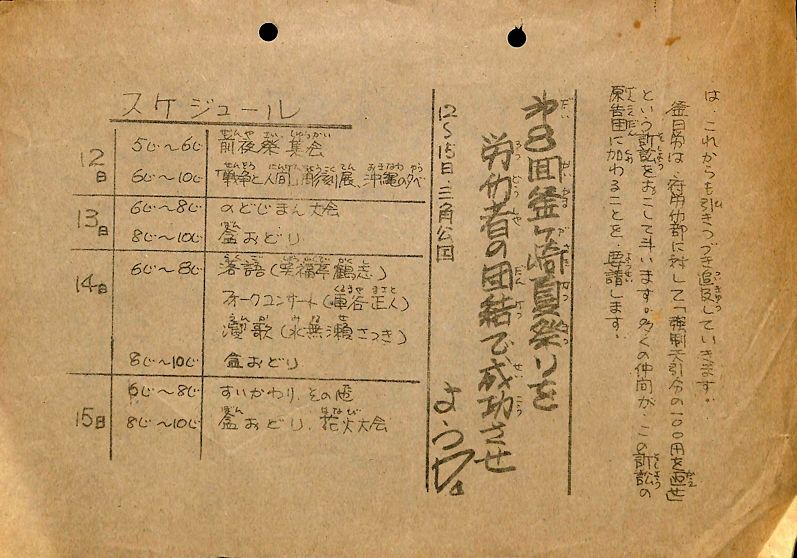 は、これからも引きつづき追及していきます。
釜日労は、府労仂部に対して「強制天引分の一〇〇円を返せ」
という訴訟をおこして斗います。多くの仲間が、この訴訟の
原告団に加わることを、要請します。
第8回釜ヶ崎夏祭りを
労仂者の団結で成功させ
よう!
12〜15日・三角公園
スケジュール
12日 5じ〜6じ 前夜祭 集会
6じ〜10じ 「戦争と人間」彫刻展、沖縄の夕べ
13日 6じ〜8じ のどじまん大会
8じ〜10じ 盆おどり
14日 6じ〜8じ 落語(笑福亭鶴志)
フォークコンサート(車谷正人)
演歌(水無瀬さつき)
8じ〜10じ 盆おどり
15日 6じ〜8じ すいかわり、その他
8じ〜10じ 盆おどり、花火大会